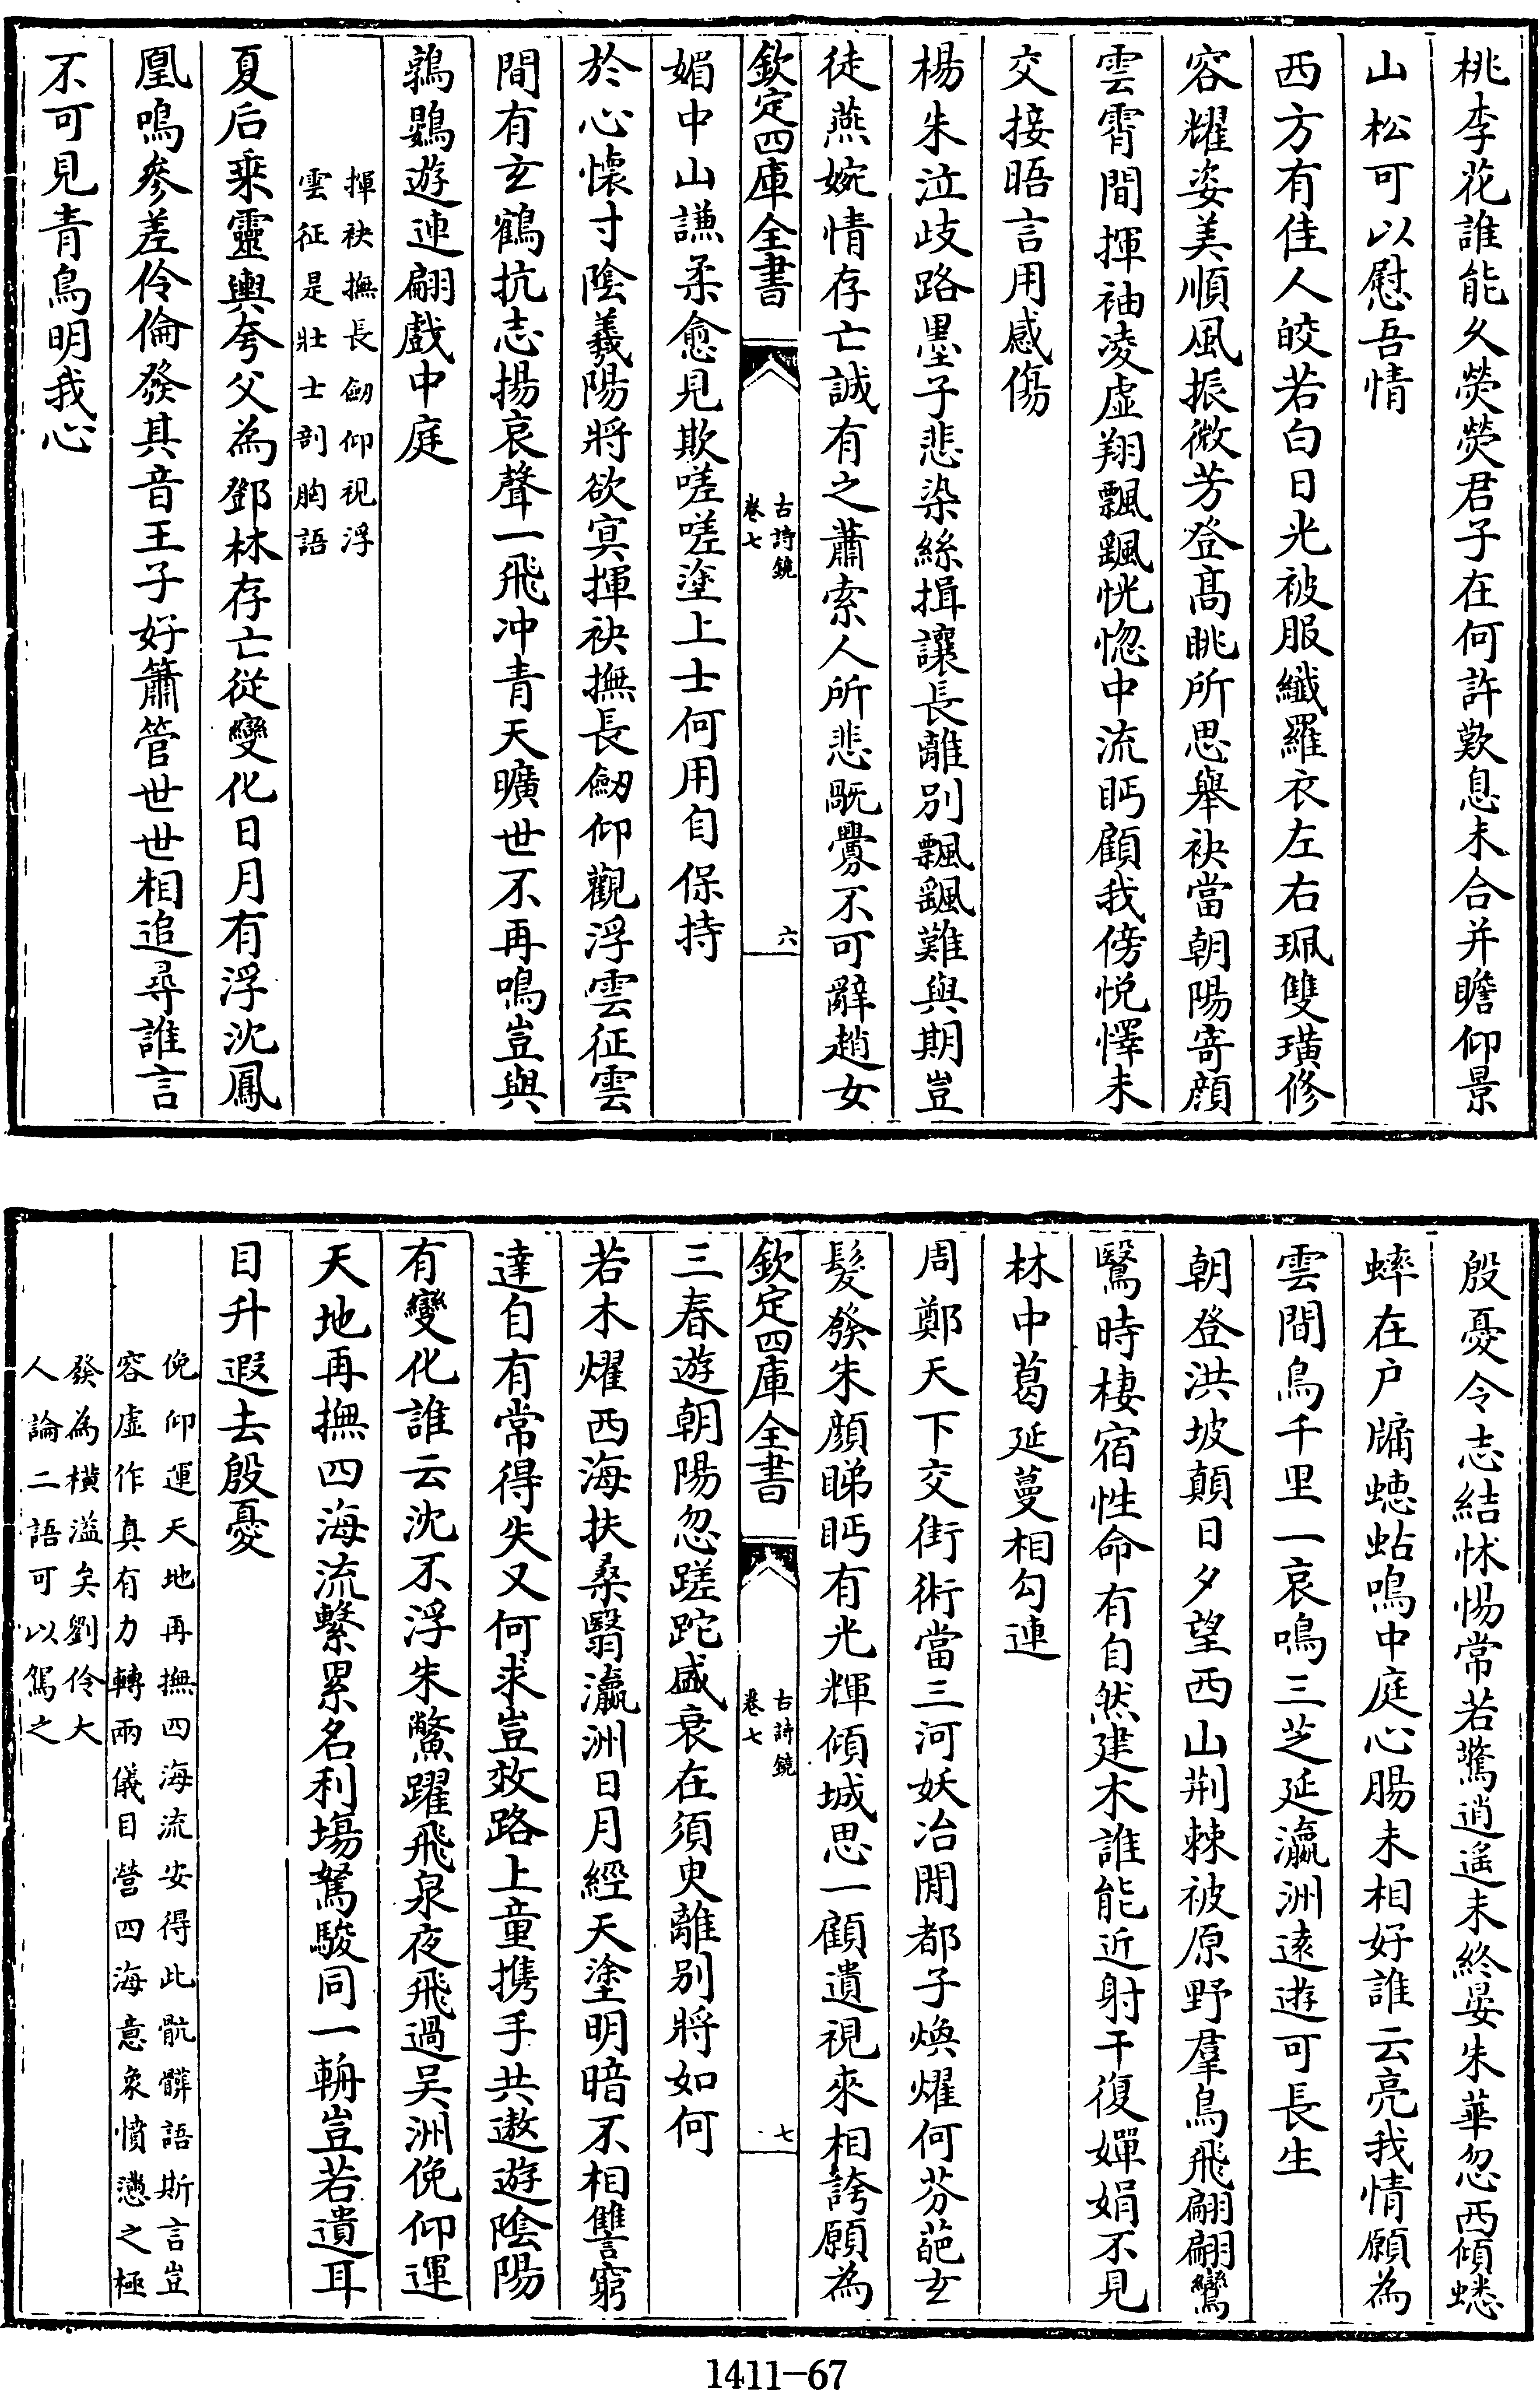 桃李花誰能久熒熒君子在何許歎息未合并瞻仰景
山松可以慰吾情
西方有佳人皎若白日光被服纖羅衣左右珮雙璜修
容耀姿美順風振微芳登髙眺所思舉袂當朝陽寄顔
雲霄間揮袖凌虚翔飄颻恍惚中流眄顧我傍悦懌未
交接晤言用感傷
楊朱泣歧路墨子悲染絲揖讓長離别飄颻難與期豈
徒燕婉情存亡誠有之蕭索人所悲禍釁不可辭趙女
欽定四庫全書
古詩鏡
卷七
六
媚中山謙柔愈見欺嗟嗟塗上士何用自保持
於心懷寸隂羲陽將欲㝠揮袂撫長劒仰觀浮雲征雲
間有玄鶴抗志揚哀聲一飛冲青天曠世不再鳴豈與
鶉鷃遊連翩戲中庭
揮袂撫長劒仰視浮
雲征是壯士剖胸語
夏后乗靈輿夸父為鄧林存亡從變化日月有浮沈鳳
凰鳴參差伶倫發其音王子好簫管世世相追尋誰言
不可見青鳥明我心
殷憂令志結怵惕常若驚逍遥未終晏朱華忽西傾蟋
蟀在户牖蟪蛄鳴中庭心腸未相好誰云亮我情願為
雲間鳥千里一哀鳴三芝延瀛洲逺遊可長生
朝登洪坡顛日夕望西山荆棘被原野羣鳥飛翩翩鸞
鷖時棲宿性命有自然建木誰能近射干復嬋娟不見
林中葛延蔓相勾連
周鄭天下交街術當三河妖冶閒都子煥燿何芬葩玄
髮發朱顔睇眄有光輝傾城思一顧遺視來相誇願為
欽定四庫全書
古詩鏡
卷七
七
三春遊朝陽忽蹉跎盛衰在須臾離别將如何
若木燿西海扶桑翳瀛洲日月經天塗明暗不相讐窮
達自有常得失又何求豈效路上童携手共遨遊隂陽
有變化誰云沈不浮朱鼈躍飛泉夜飛過吴洲俛仰運
天地再撫四海流繫累名利塲駑駿同一輈豈若遺耳
目升遐去殷憂
俛仰運天地再撫四海流安得此骯髒語斯言豈
容虚作真有力轉兩儀目營四海意象憤懣之極
發為橫溢矣劉伶大
人論二語可以駕之
1411-67